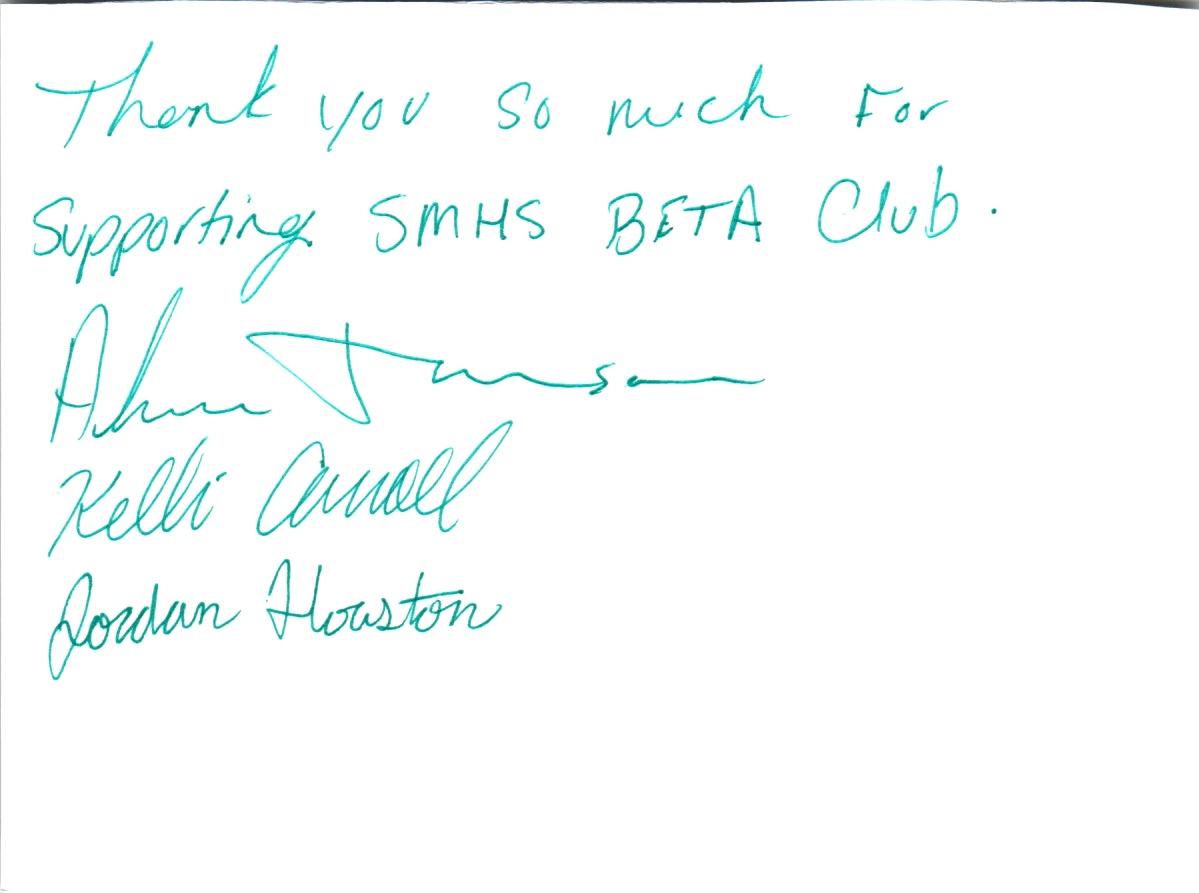 Thank you so much For
Supporting SMHS BETA Club.
Kelli Carroll
Jordan Houston